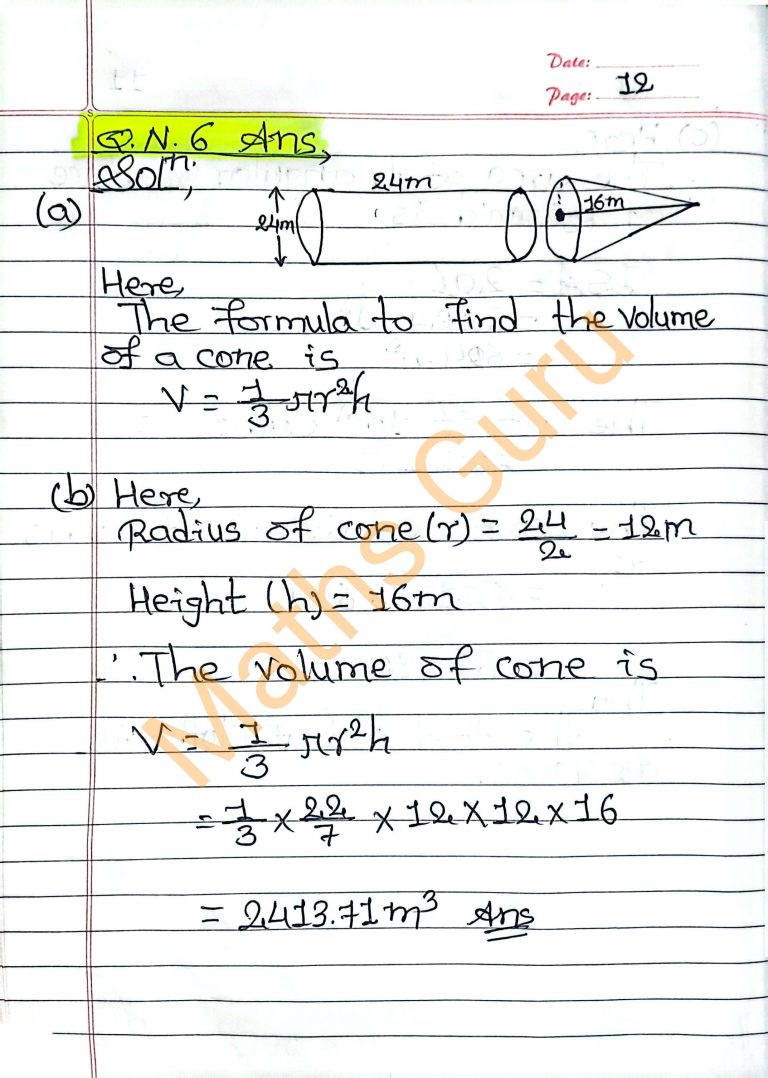 Date:
Page: 12
Q.N. 6 Ans
Solⁿ;
(a)
24m
24m
16m
Here,
The formula to find the volume
of a cone is
V = 1/3 πr²h
(b) Here,
Radius of cone (r) = 24/2 = 12m
Height (h) = 16m
∴ The volume of cone is
V = 1/3 πr²h
= 1/3 × 22/7 × 12 × 12 × 16
= 2413.71m³ Ans
Maths Guru